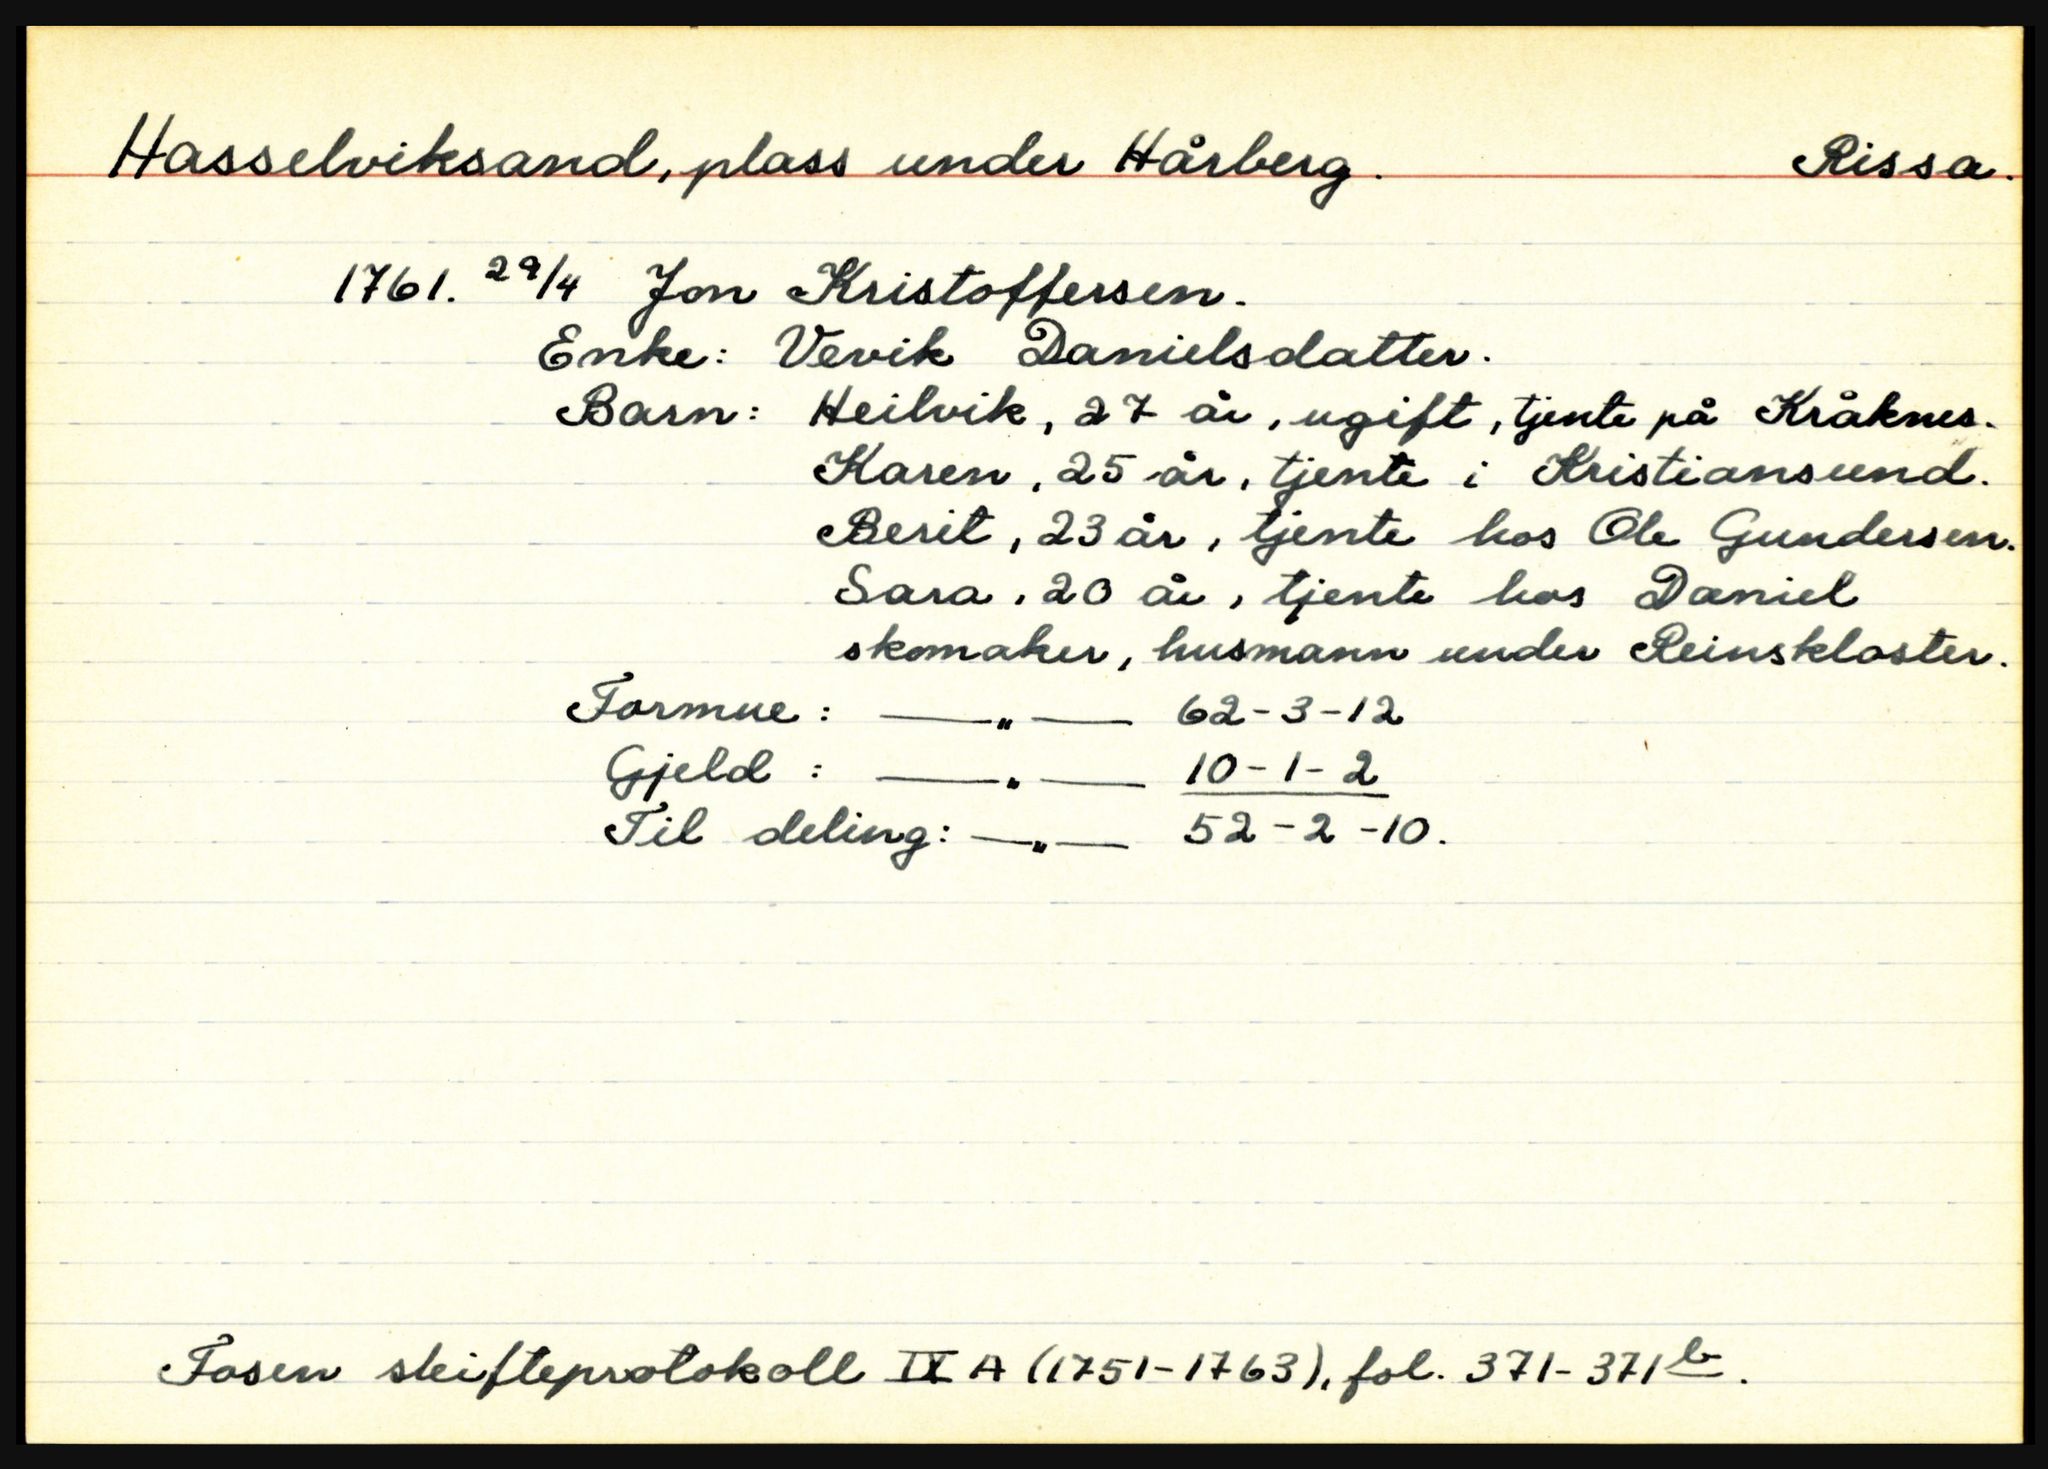 Hasselviksand, plass under Hårberg. Rissa.
1761. 29/4 Jon Kristoffersen.
Enke: Vevik Danielsdatter.
Barn: Heilvik, 27 år, ugift, tjente på Kråknes.
Karen, 25 år, tjente i Kristiansund.
Berit, 23 år, tjente hos Ole Gundersen.
Sara, 20 år, tjente hos Daniel
skomaker, husmann under Reinskloster.
Formue: —„— 62-3-12
Gjeld: —„— 10-1-2
Til deling: —„— 52-2-10.
Fosen skifteprotokoll IX A (1751-1763), fol. 371-371b.